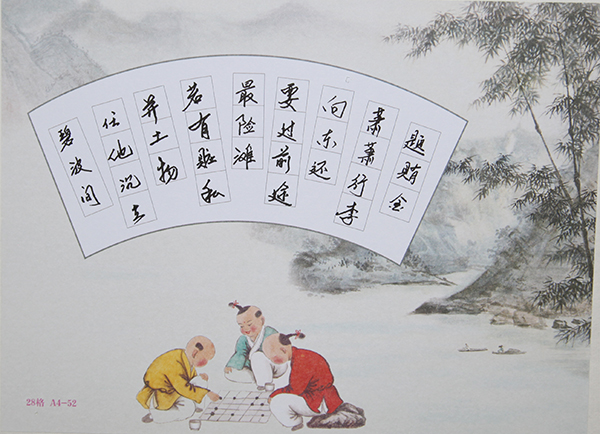 题贿金
萧萧行李
向东还
要过前途
最险滩
若有赃私
并土物
任他沉在
碧波间
28格 A4-52